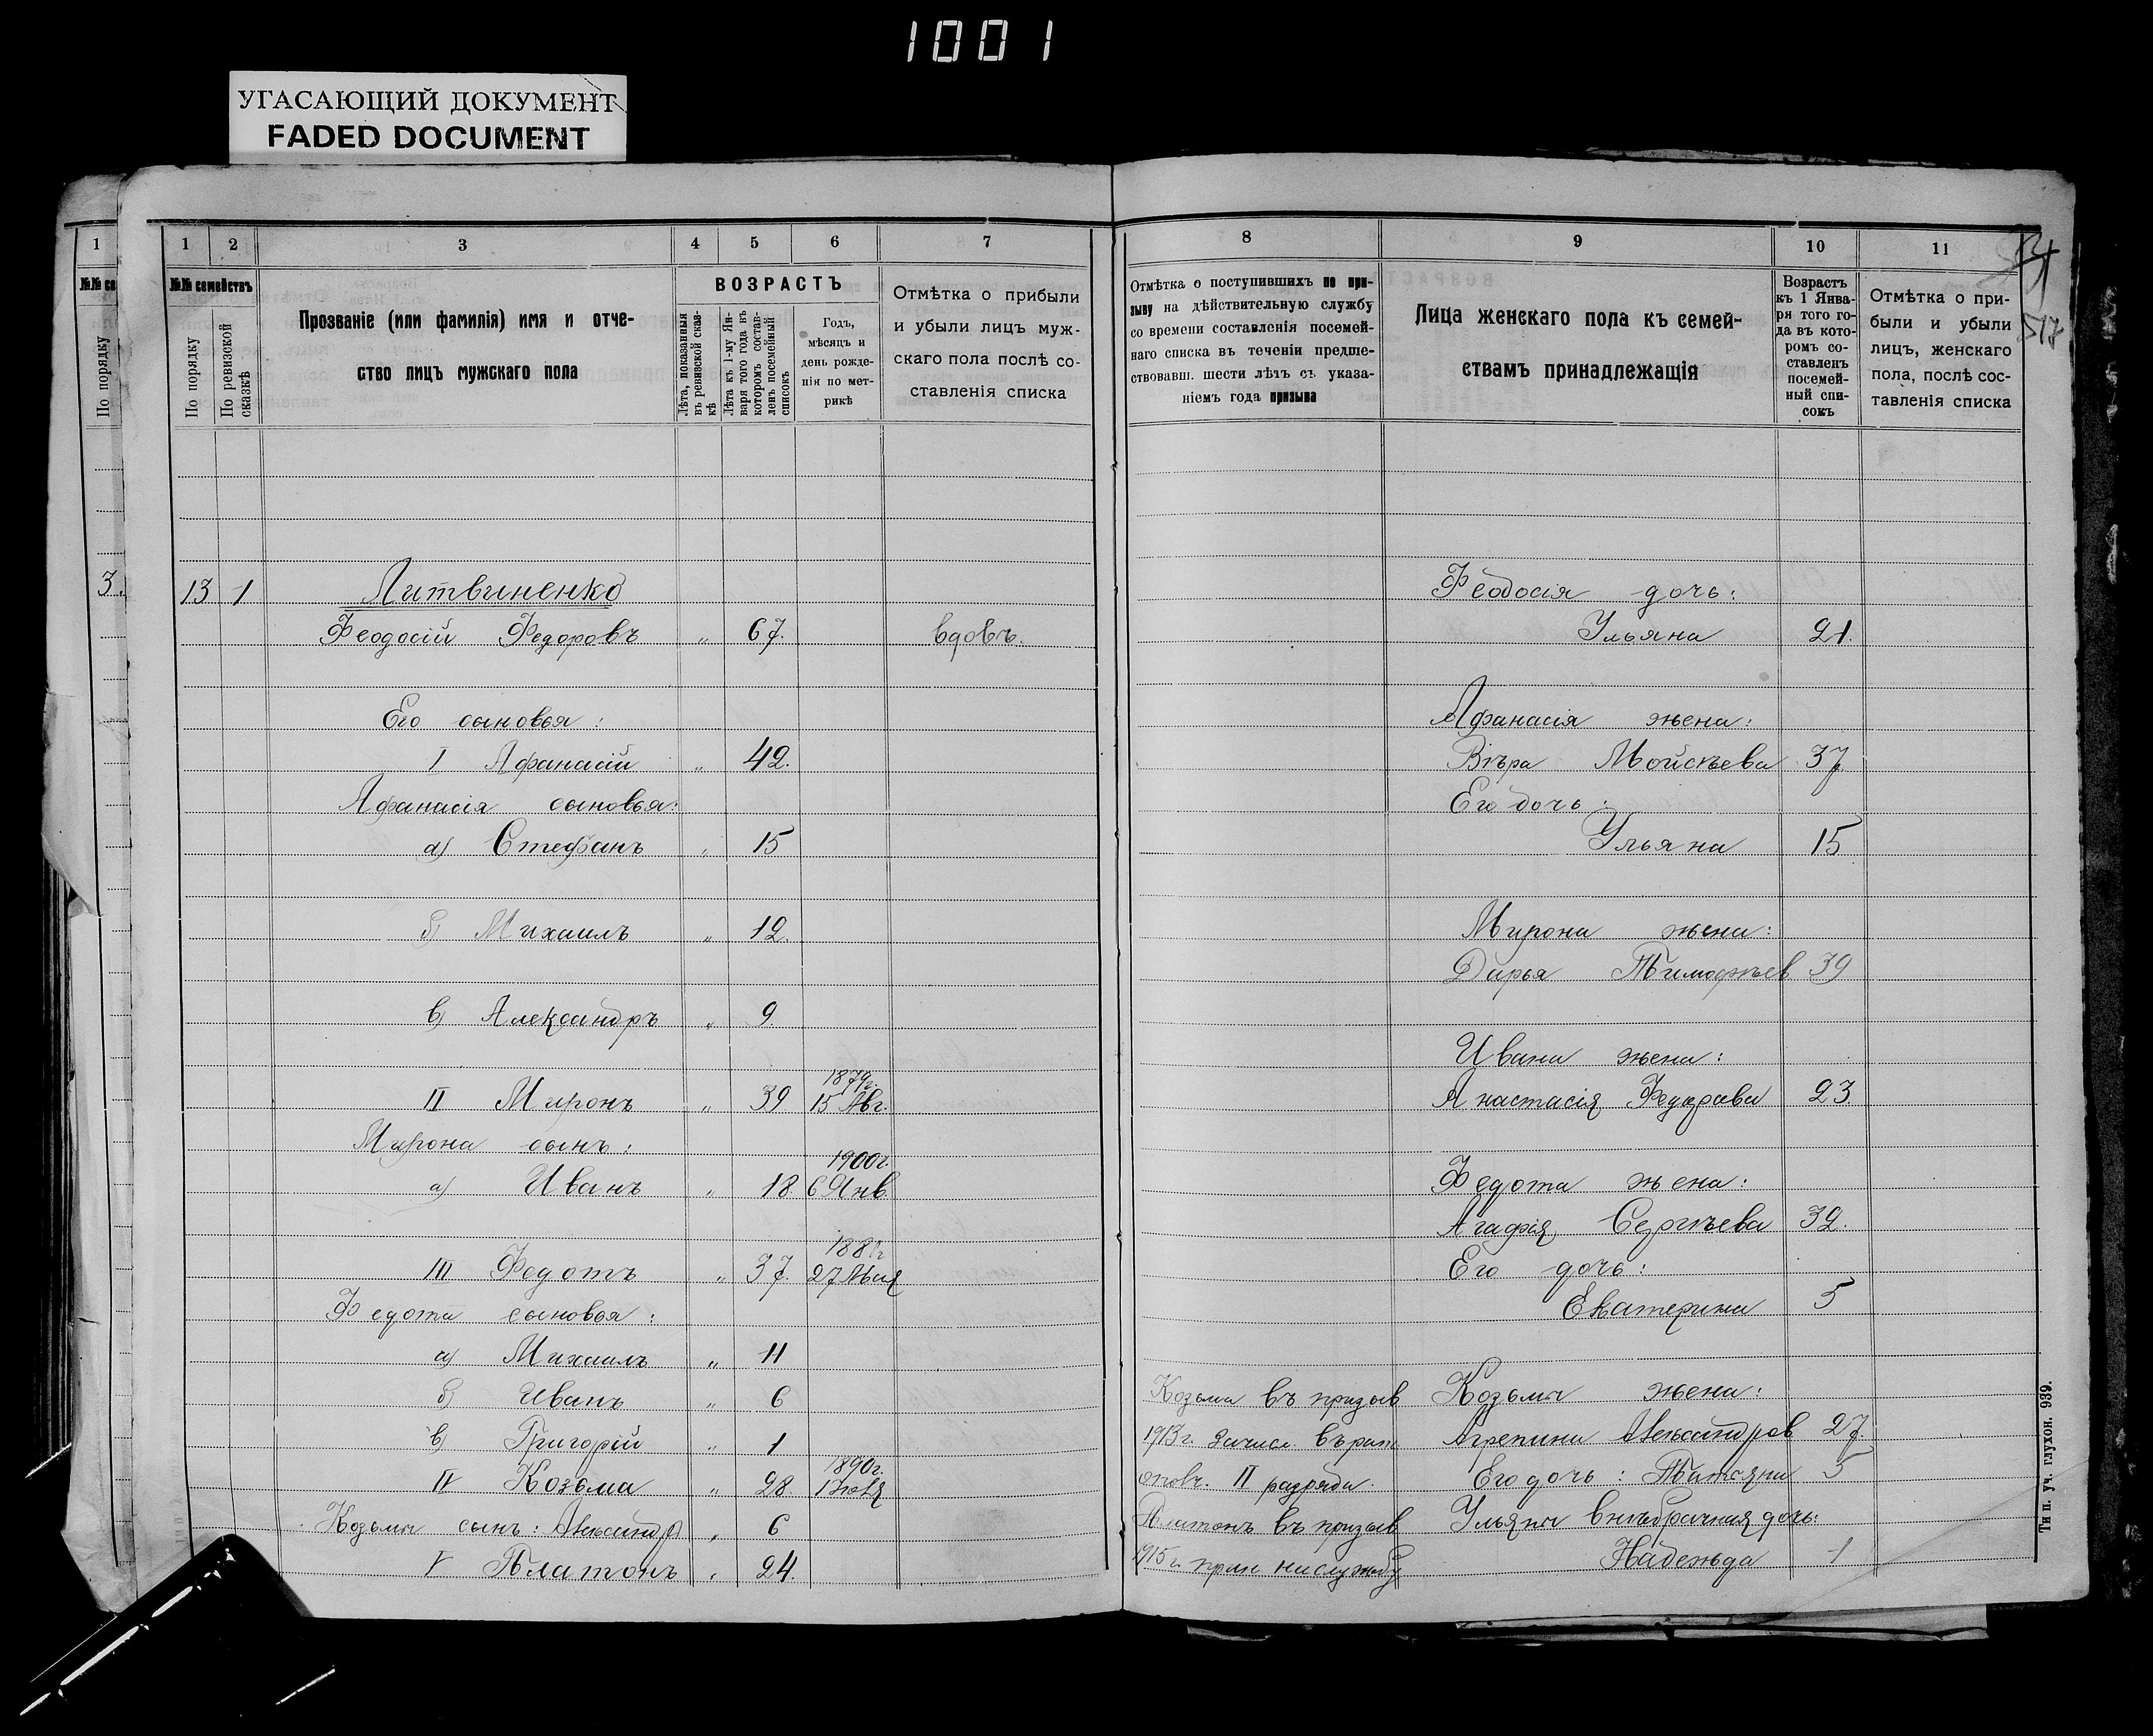 1001
УГАСАЮЩИЙ ДОКУМЕНТ
FADED DOCUMENT
1
№№ се
По порядку
3.
1 2 3 4 5 6 7
№№ семействъ
По порядку
По ревизской сказкѣ
Прозваніе (или фамилія) имя и отче-
ство лицъ мужскаго пола
ВОЗРАСТЪ
Лѣта, показанныя въ ревизской сказ-кѣ
Лѣта къ 1-му Ян-варя того года въ которомъ состав-ленъ посемейный списокъ
Годъ,
мѣсяцъ и
день рожде-
нія по мет-
рикѣ
Отмѣтка о прибыли
и убыли лицъ муж-
скаго пола послѣ со-
ставленія списка
13 1 Литвиненко
Феодосій Федоровъ „ 67. вдовъ.
Его сыновья:
I Афанасій „ 42.
Афанасія сыновья:
а) Стефанъ „ 15
б) Михаилъ „ 12.
в) Александръ „ 9.
1879г.
II Миронъ „ 39 15 Авг.
Мирона сынъ:
1900г.
а) Иванъ „ 18 6 Янв.
III Федотъ „ 37. 27 Мая
Федота сыновья:
а) Михаилъ „ 11
б) Иванъ „ 6
в) Григорій „ 1
1890г.
IV Козьма „ 28.
Козьмы сынъ: Александръ „ 6
V Платонъ „ 24.
8 9 10 11
Отмѣтка о поступившихъ по при-
зыву на дѣйствительную службу
со времени составленія посемей-
наго списка въ теченіи предше-
ствовавш. шести лѣтъ съ указа-
ніемъ года призыва
Лица женскаго пола къ семей-
ствамъ принадлежащія
Возрастъ
къ 1 Янва-
ря того го-
да въ кото-
ромъ со-
ставленъ
посемей-
ный спи-
сокъ
Отмѣтка о при-
были и убыли
лицъ, женскаго
пола, послѣ сос-
тавленія списка
Феодосія дочь:
Ульяна 21.
Афанасія жена:
Вѣра Мойсѣева 37
Его дочь:
Ульяна 15
Мирона жена:
Дарья Тимофѣев 39
Ивана жена:
Анастасія Федорова 23.
Федота жена:
Агафія Сергѣева 32.
Его дочь:
Екатерина 5
Козьма въ призыв Козьмы жена:
1913г. зачисл. въ рат. Агрепина Александров 27.
ополч. II разряда. Его дочь: Татьяна 5
Платонъ въ призыв Ульяны внѣбрачная дочь:
1915г. прин. на службу Надежда 1
Тип. уч. глухон. 939.